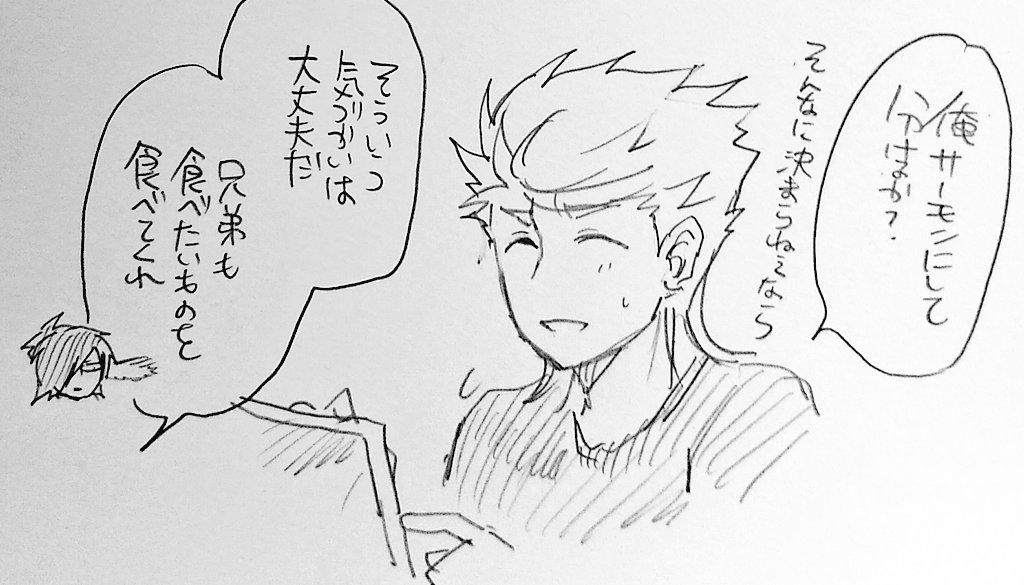 そんなに決まらねぇなら
俺サーモンにして
分けよか?
そういう
気づかいは
大丈夫だ
兄弟も
食べたいものを
食べてくれ